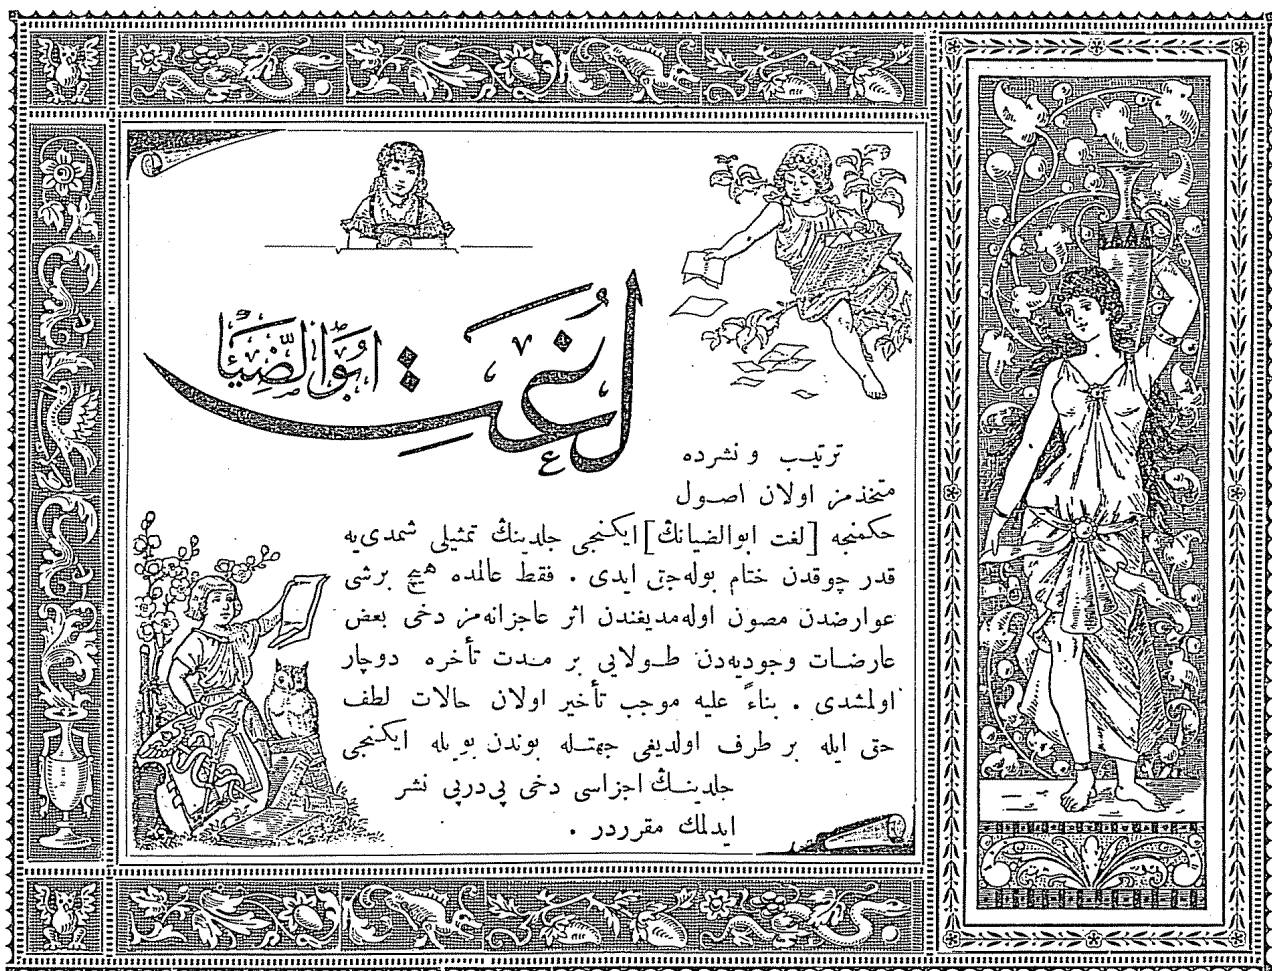 لغت
ابوالضیا
ترتیب و نشرده
متخذمز اولان اصول
حكمنجه [لغت ابوالضیانڭ] ایكنجی جلدینڭ تمثیلی شمدی‌یه
قدر چوقدن ختام بوله‌جق ایدی . فقط عالمده هیچ برشی
عوارضدن مصون اوله‌مدیغندن اثر عاجزانه‌مز دخی بعض
عارضات وجودیه‌دن طولایی بر مدت تأخره دوچار
اولمشدی . بناءً علیه موجب تأخیر اولان حالات لطف
حق ایله بر طرف اولدیغی جهتله بوندن بویله ایكنجی
جلدینڭ اجزاسی دخی پی‌درپی نشر
ایدلمك مقرردر .